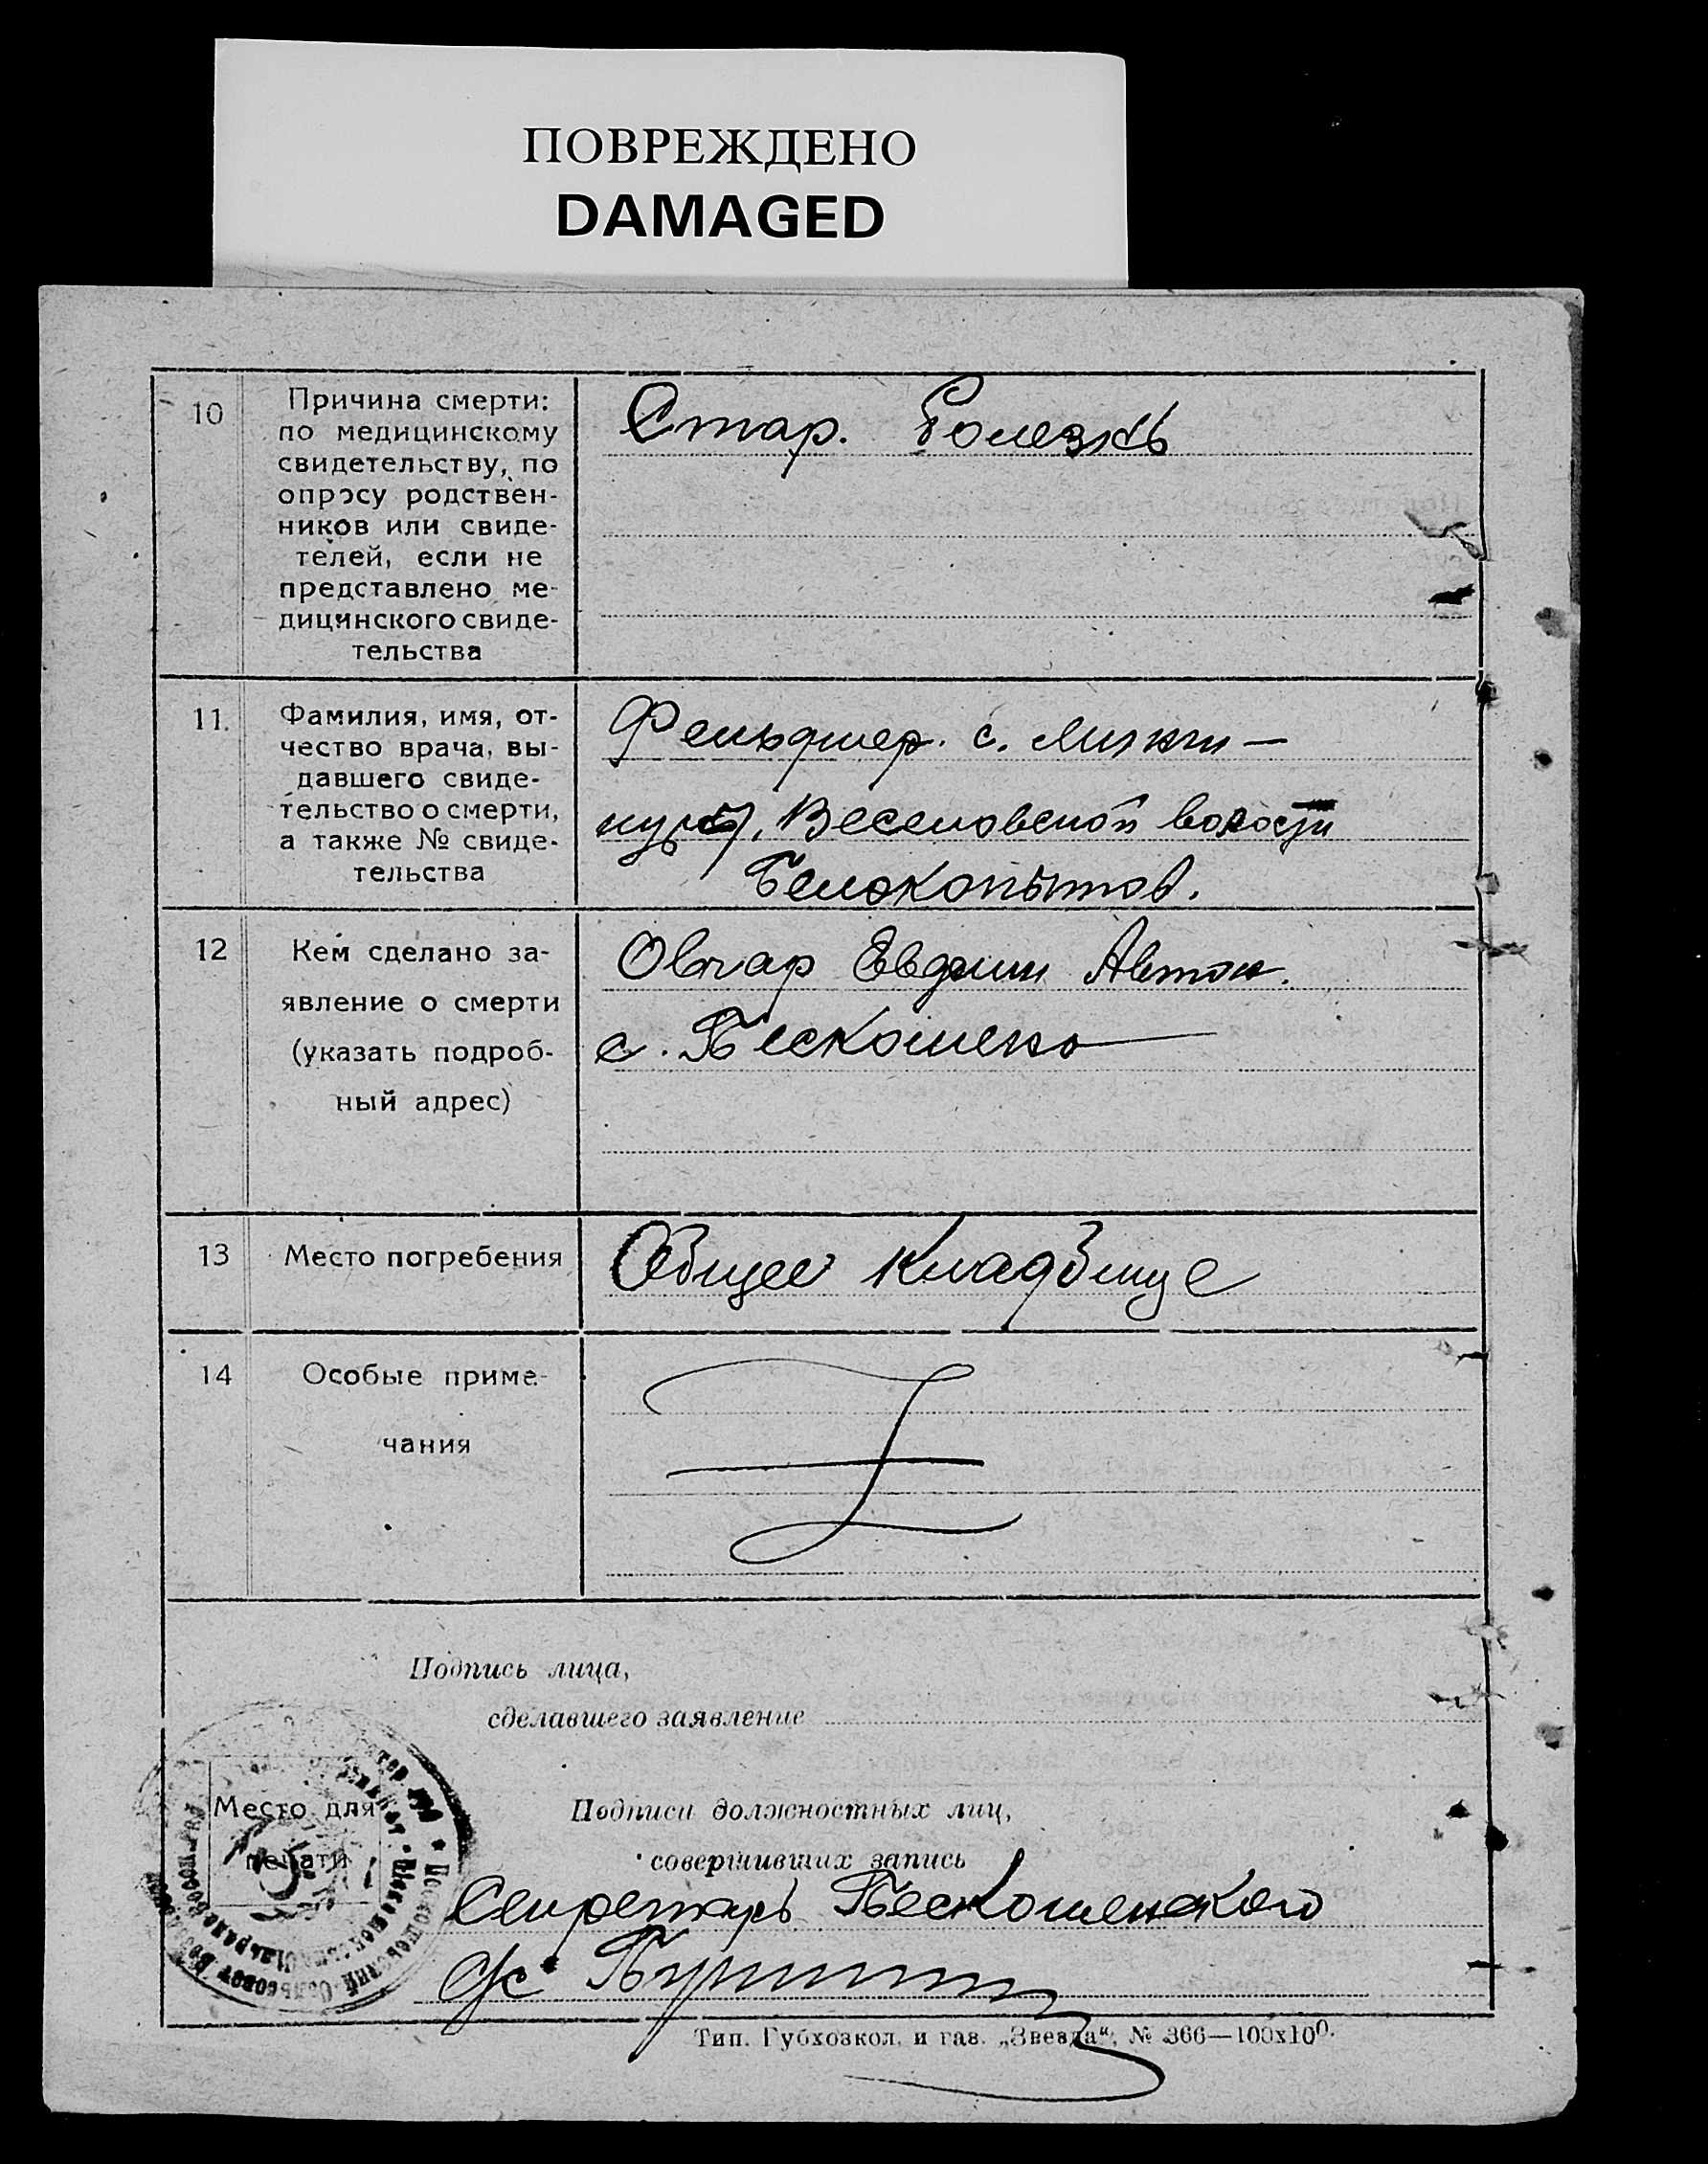 ПОВРЕЖДЕНО
DAMAGED
10
Причина смерти:
по медицинскому
свидетельству, по
опросу родствен-
ников или свиде-
телей, если не
представлено ме-
дицинского свиде-
тельства
Стар. болезнь
11.
Фамилия, имя, от-
чество врача, вы-
давшего свиде-
тельство о смерти,
а также № свиде-
тельства
Фельдшер. с.
Веселовской волости
Белокопытов.
12
Кем сделано за-
явление о смерти
(указать подроб-
ный адрес)
Овчар Евдоким Автон.
с. Пескошено
13
Место погребения
Общее кладбище
14
Особые приме-
чания
Подпись лица,
сделавшего заявление
Место для
печати
Подписи должностных лиц,
совершивших запись
Секретарь Пескошенского
с/с
Тип. Губхозкол. и газ. „Звезда“, № 366—100х100.